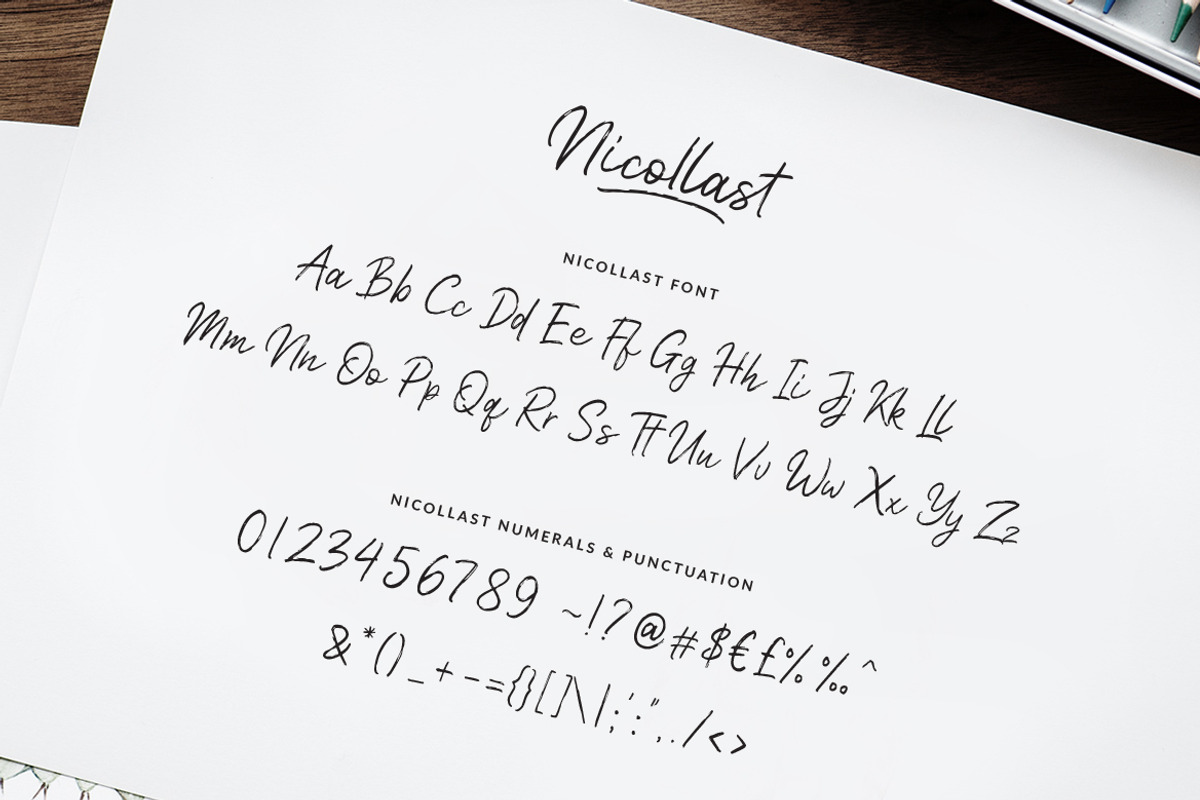 Nicollast
NICOLLAST FONT
Aa Bb Cc Dd Ee Ff Gg Hh Ii Jj Kk Ll
Mm Nn Oo Pp Qq Rr Ss Tt Uu Vv Ww Xx Yy Zz
NICOLLAST NUMERALS & PUNCTUATION
0123456789 ~!?@#$€£%‰^
&*()_+-={}[]\|;':",./<>